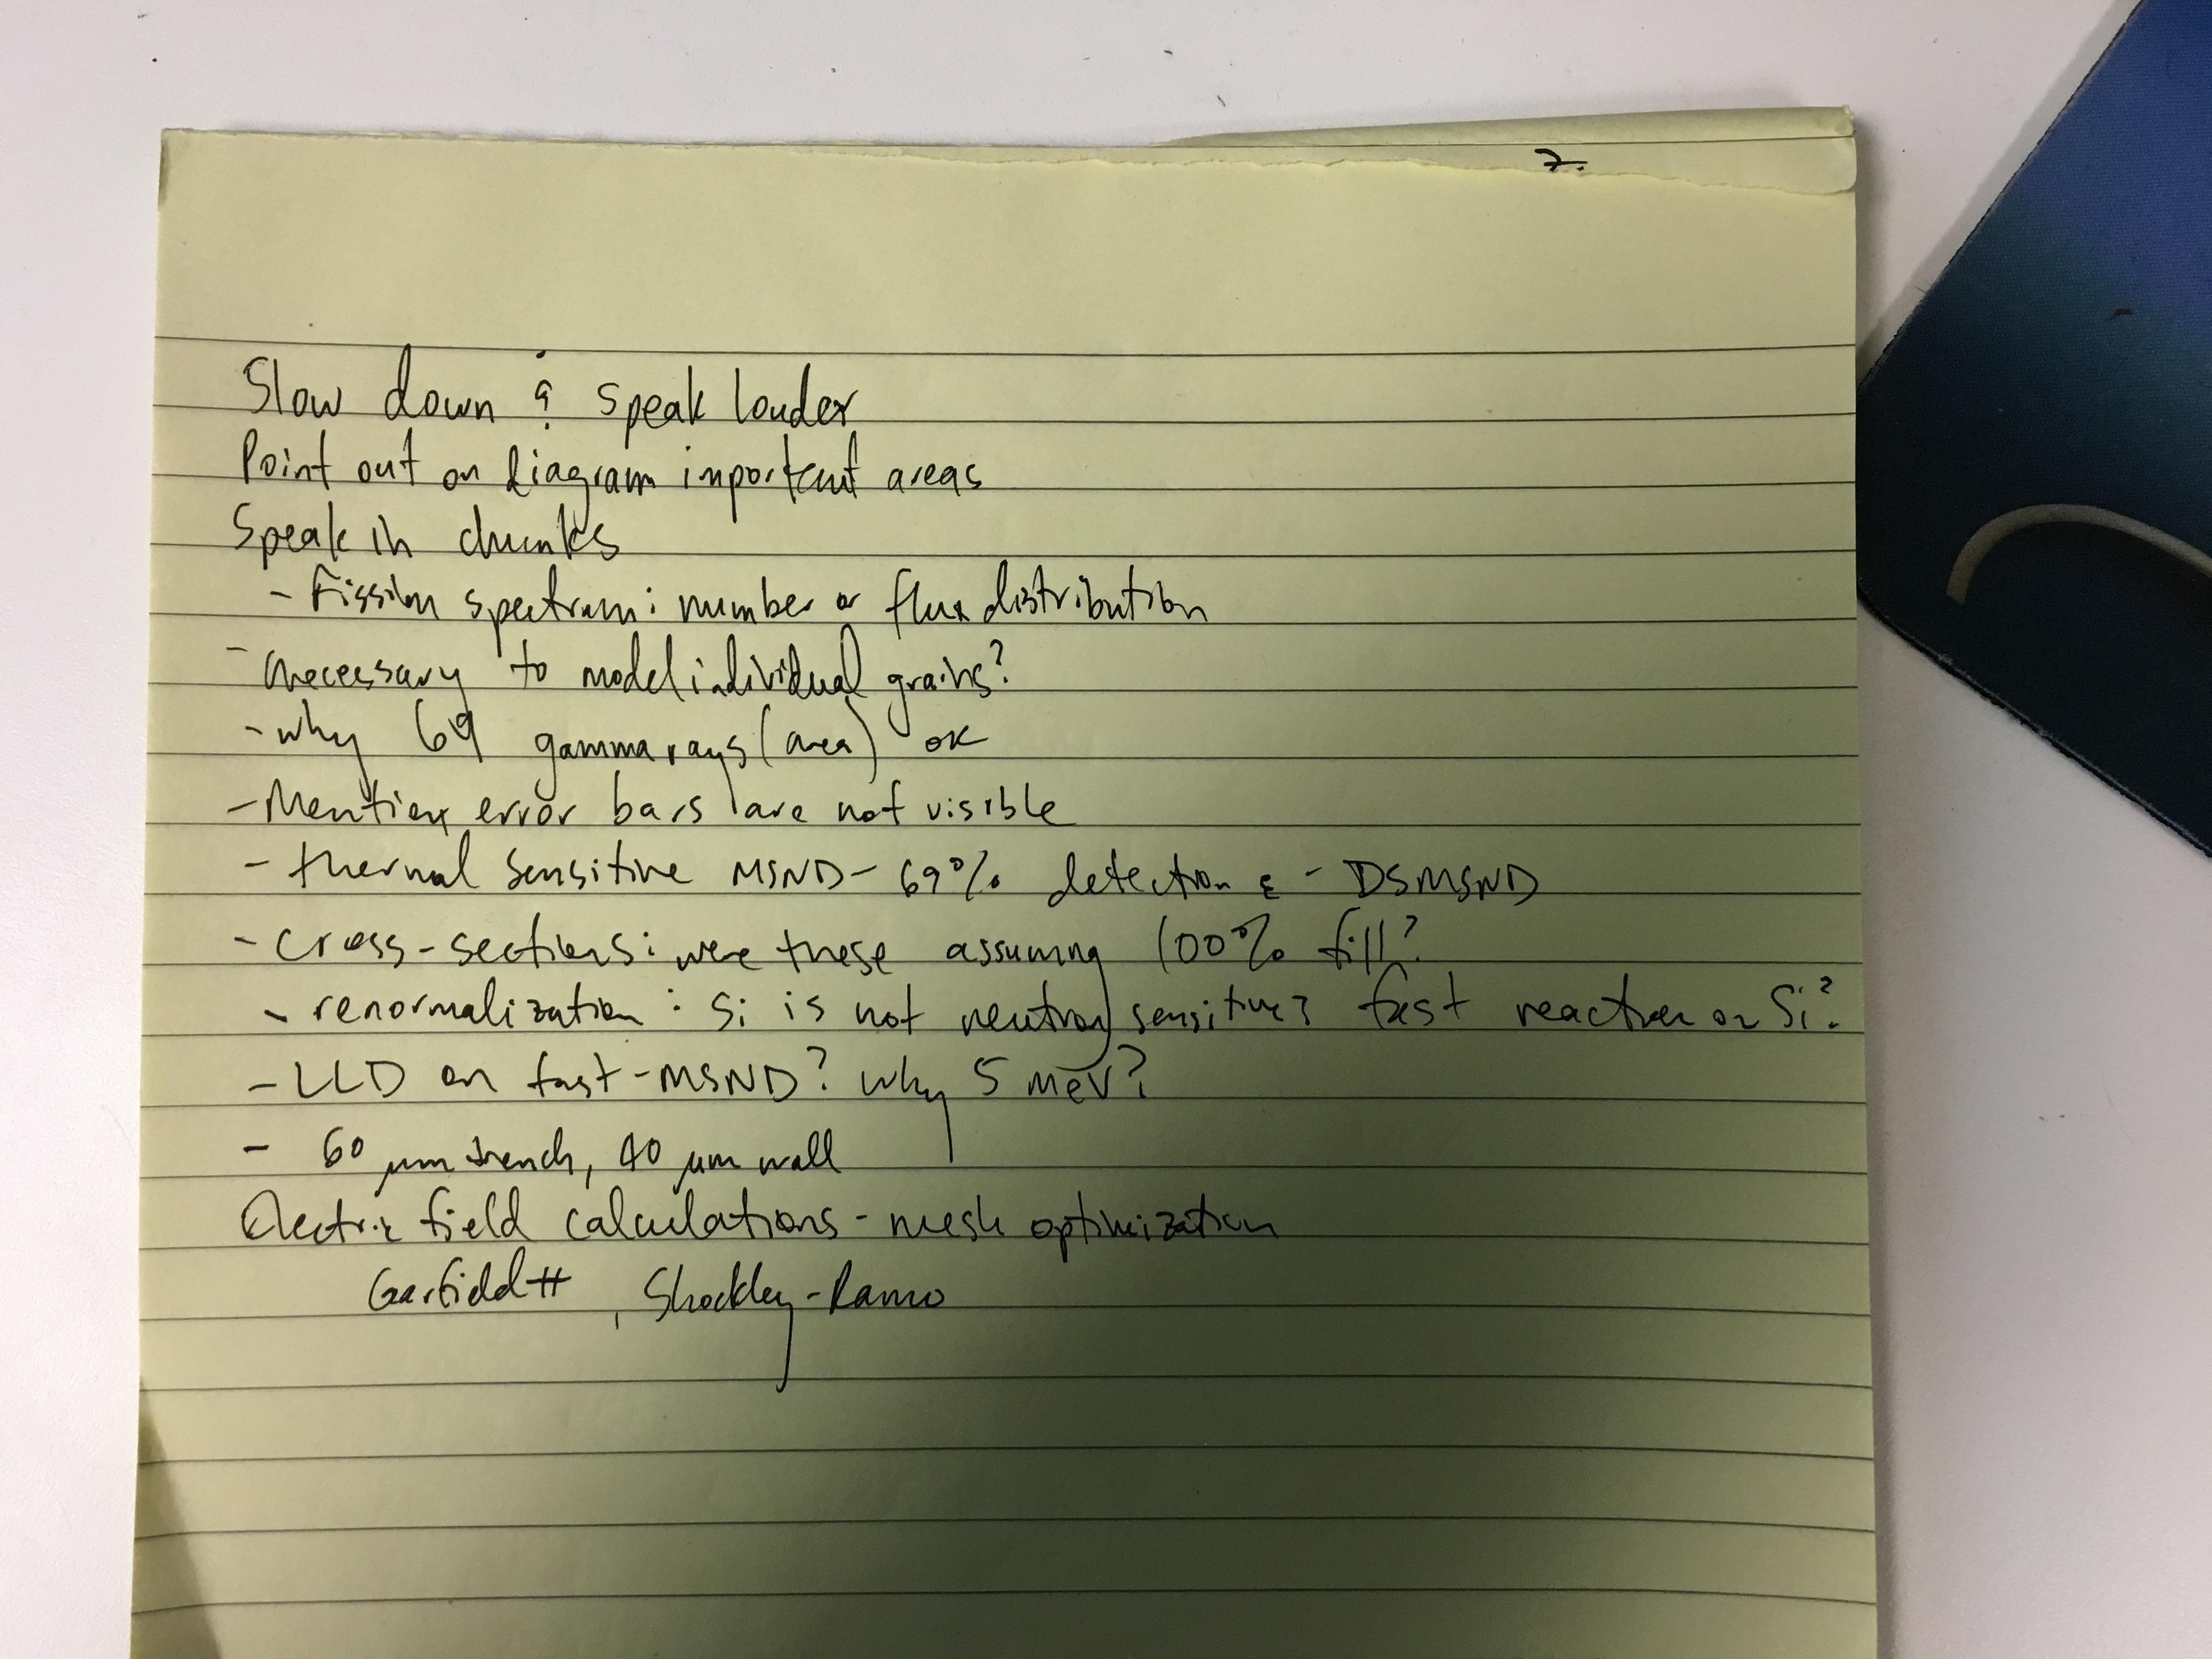 7.
Slow down & speak louder
Point out on diagram important areas
Speak in chunks
- Fission spectrum: number or flux distribution
- necessary to model individual grains?
- why 69 gamma rays (area) ok
- Mention error bars are not visible
- thermal sensitive MSND - 69% detection ε - DSMSND
- cross-sections: were these assuming 100% fill?
- renormalization: Si is not neutron sensitive? fast reaction on Si?
- LLD on fast-MSND? why 5 MeV?
- 60 μm trench, 40 μm wall
Electric field calculations - mesh optimization
Garfield++, Shockley-Ramo